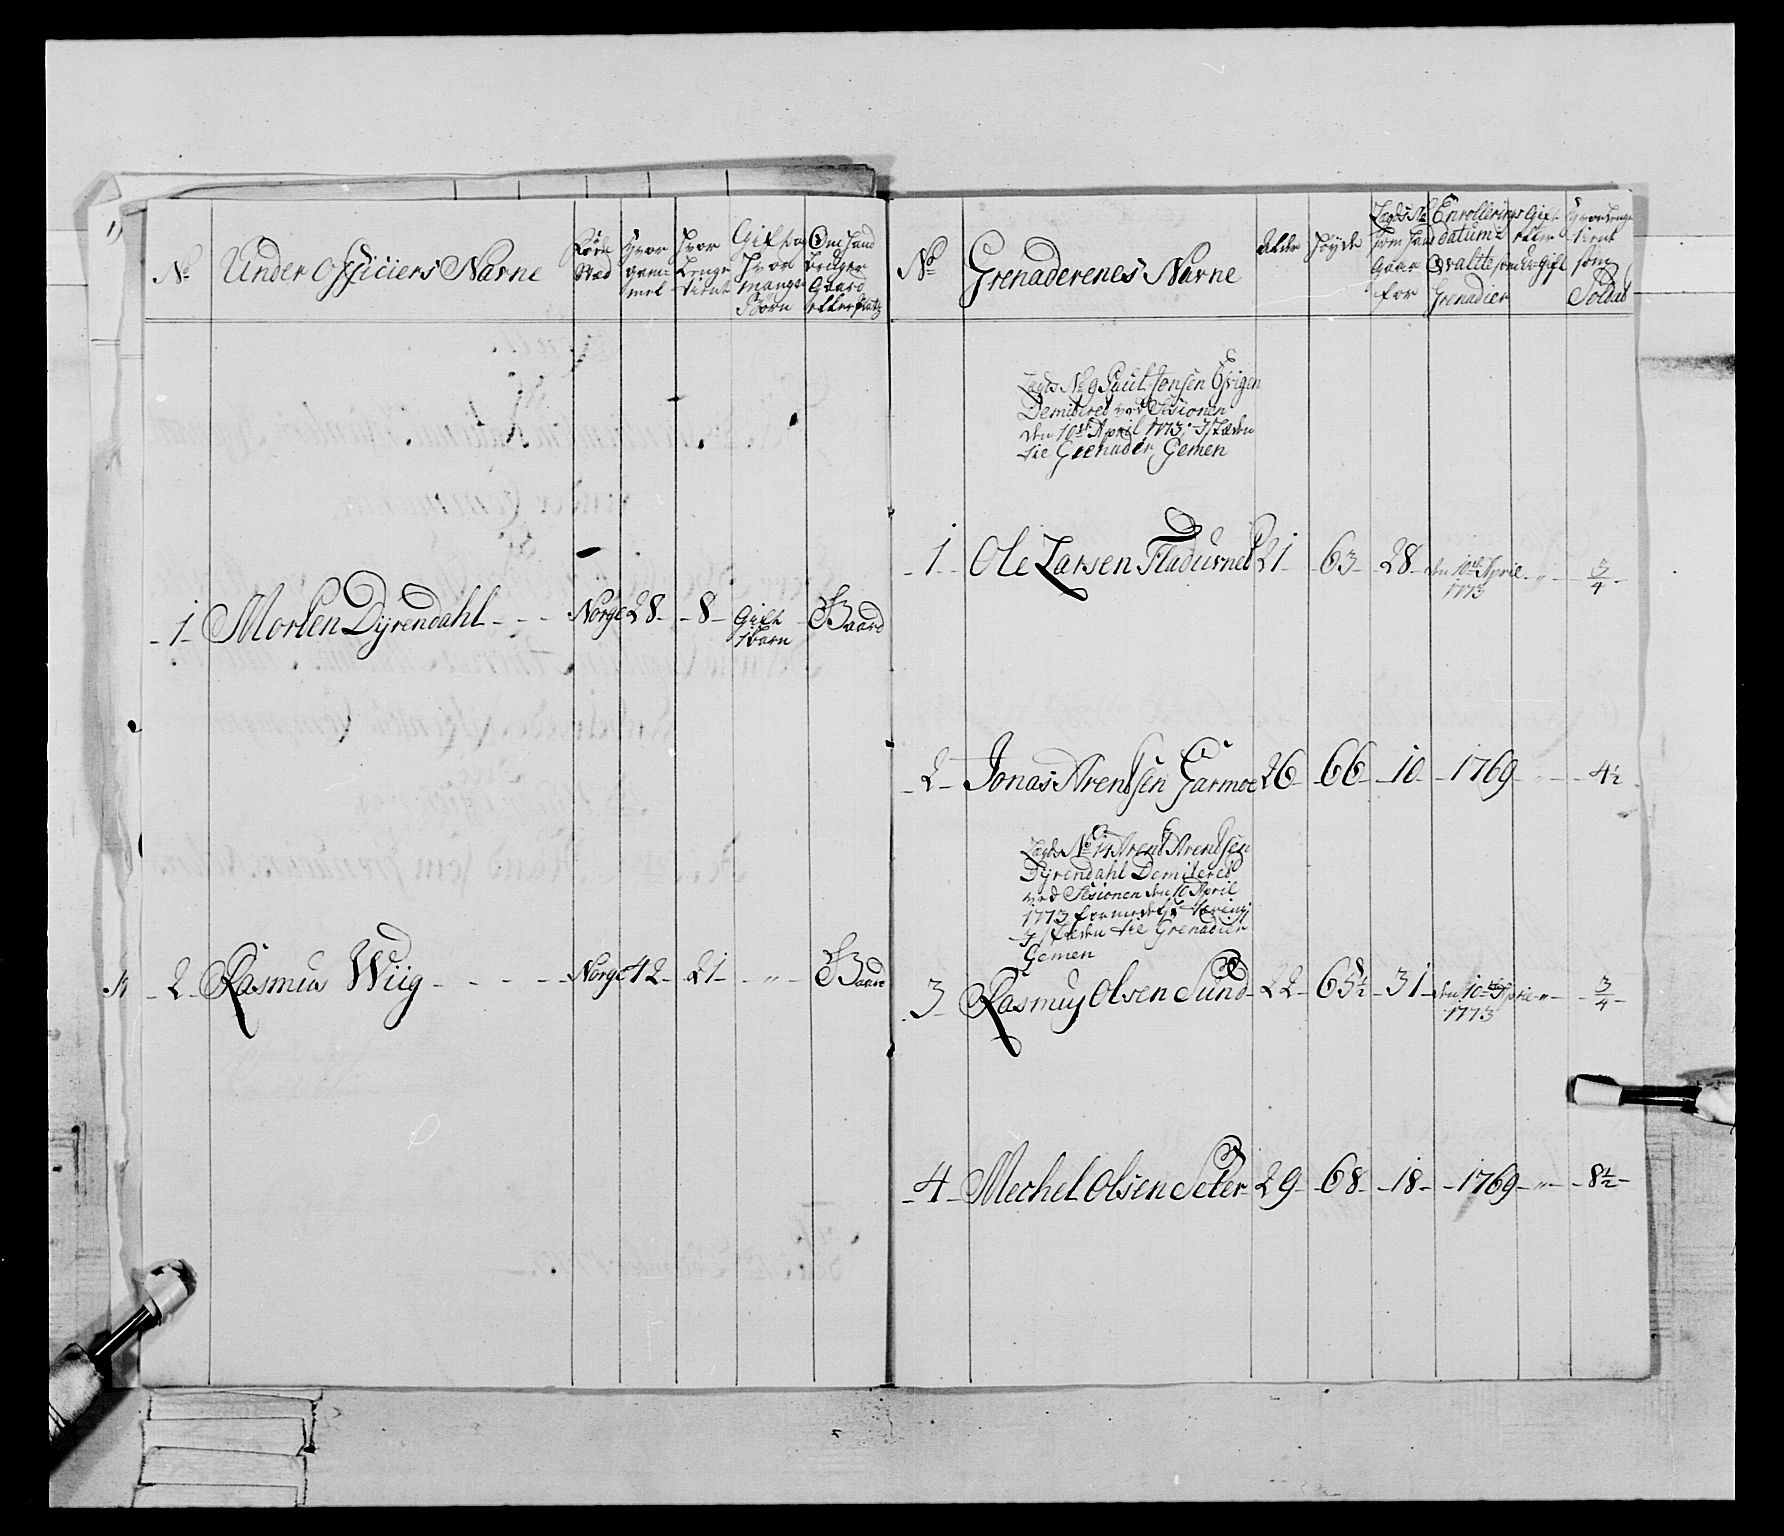 No
Under Officiers Nafne
Føde
Stæd
Hvor
gam-
mel
Hvor
Lenge
tient
Gift og
Hvor
mange
Børn
Om Hand
bruger
Gaard
eller platz
1 Morten Dÿrendahl Norge 28 8 Gift
1 barn
Gaard
2 Rasmus Wiig Norge 42 21 " Gaard
No
Grenaderenes Nafne
Alder
Høyde
Lægds No
som Hand
Gaar
for
Enrollerings
datum
som
Grenadier
Gift
eller
U-Gift
Hvor Lenge
tient
som
Soldat
Lægds No 9 Paul Jonsen
Demiteret ved Sesionen
den 10de April 1773, I stæden
til Grenader Gemen
1 Ole Larsen Fladurnes 21 63 28 den 10de April
1773
" 3/4
2 Jonas Arentsen Garmoe 26 66 10 1769 " 4½
Lægds No 14 Arent Arentsen
Dÿrendahl Demiteret
ved Sesionen den 10 April
1773 formedelst
I stæden til Grenadier
Gemen
3 Rasmus Olsen Sund 22 65½ 31 den 10de April
1773
" 3/4
4 Mechel Olsen Seter 29 68 18 1769 " 8½